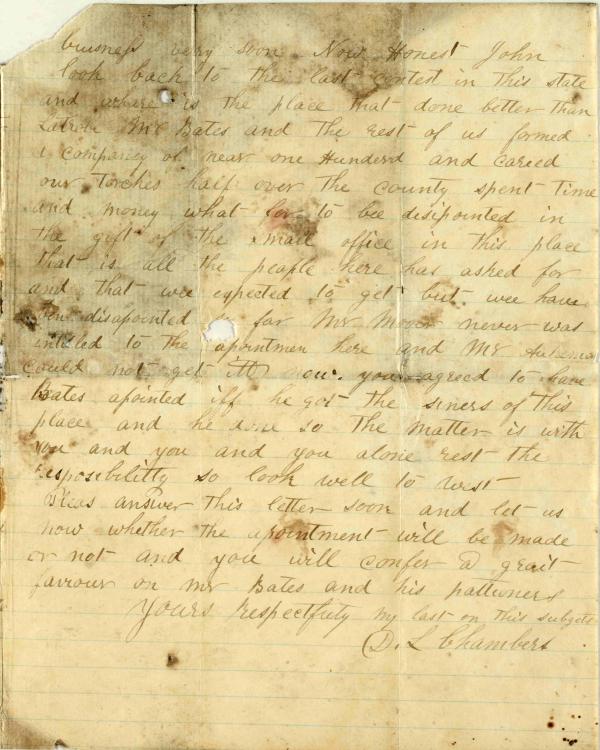 buisness very soon Now Honest John
look back to the last contest in this state
and whare is the place that done better than
Latrobe Mr Bates and the rest of us formed
a company of near one Hunderd and caried
our Torches half over the county spent time
and money what for to bee disipointed in
the gift of the mail office in this place
that is all the peaple here has asked for
and that wee expected to get but wee have
disapointed so far Mr Moore never was
intitled to the apointmen here and Mr
could not get it now. you agreed to have
Bates apointed iff he got the siners of this
place and he done so The matter is with
you and you and you alone rest the
resposibilitty so look well to West
Pleas answer this letter soon and let us
now whether the apointment will be made
or not and you will confer a grait
favour on Mr Bates and his pattioners
Yours Respectfuly my last on this subgets
D. L Chambers